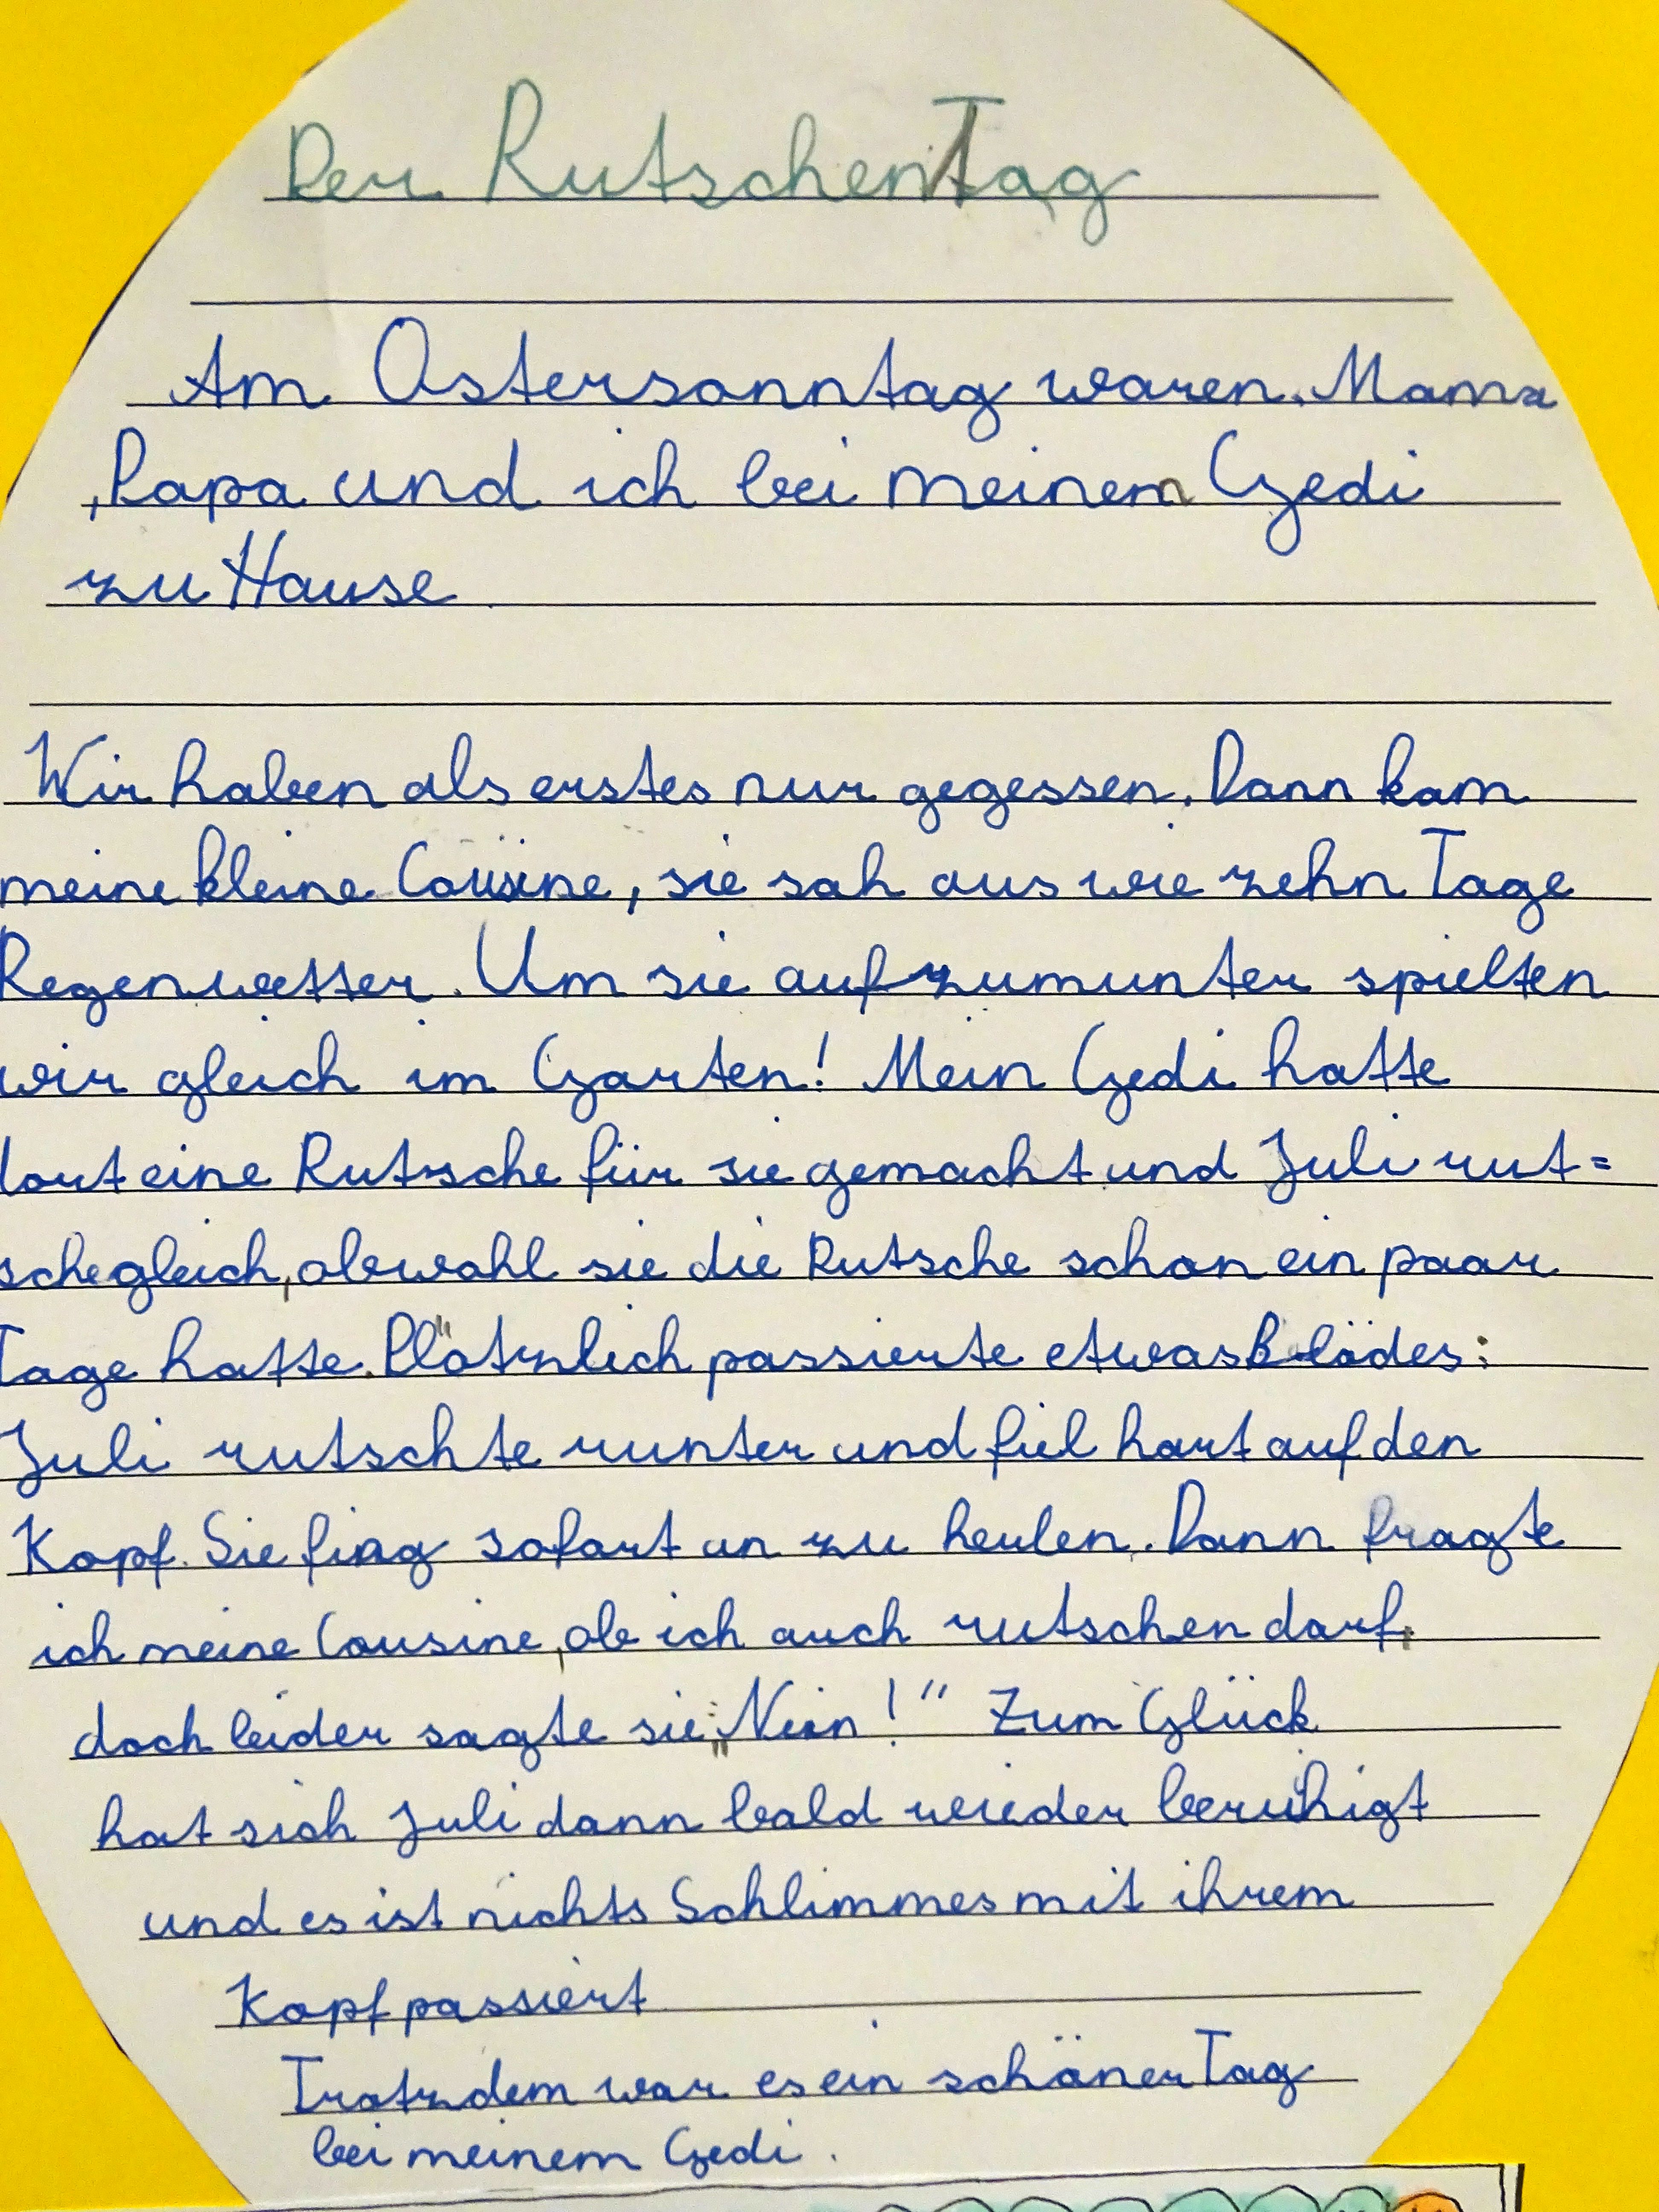 Der RutschenTag
Am Ostersonntag waren Mama
, Papa und ich bei meinem Gedi
zu Hause.
Wir haben als erstes nur gegessen. Dann kam
meine kleine Cousine, sie sah aus wie zehn Tage
Regenwetter. Um sie aufzumunter spielten
wir gleich im Garten! Mein Gedi hatte
dort eine Rutsche für sie gemacht und Juli rut=
sche gleich, obwohl sie die Rutsche schon ein paar
Tage hatte. Plötzlich passierte etwas Blödes:
Juli rutschte runter und fiel hart auf den
Kopf. Sie fing sofort an zu heulen. Dann fragte
ich meine Cousine, ob ich auch rutschen darf,
doch leider sagte sie: „Nein!“ Zum Glück
hat sich Juli dann bald wieder beruhigt
und es ist nichts Schlimmes mit ihrem
Kopf passiert
Trotzdem war es ein schöner Tag
bei meinem Gedi.